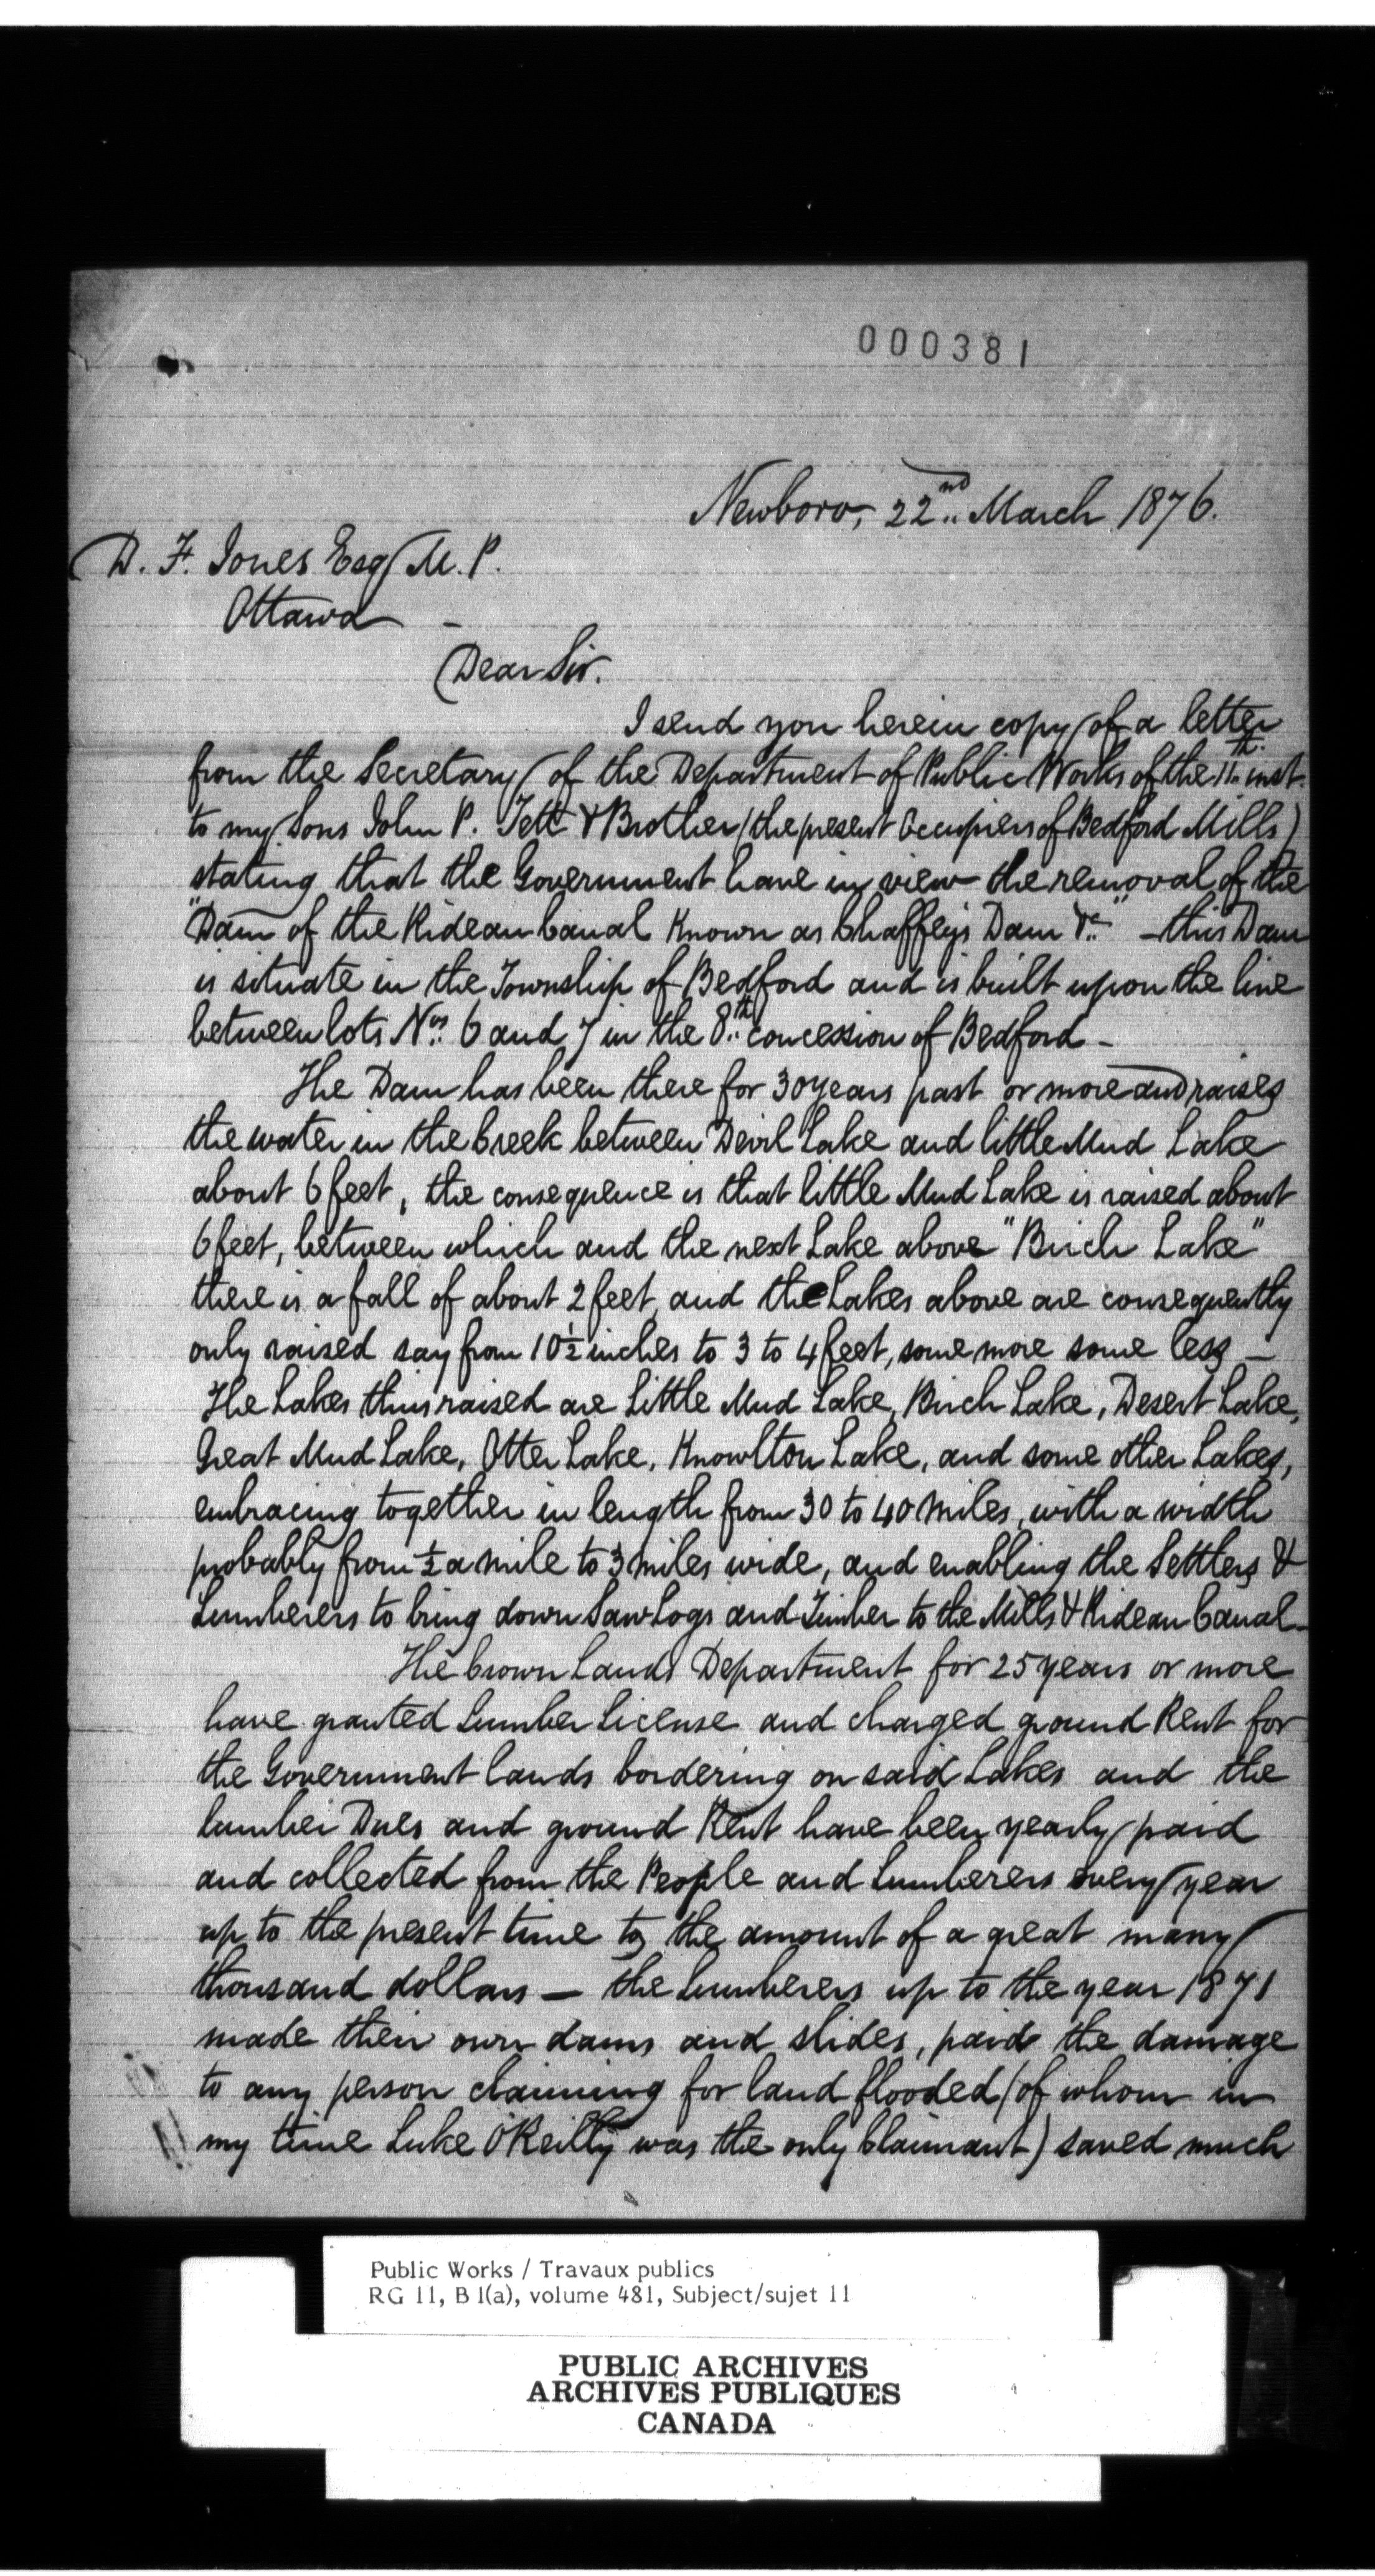 000381
Newboro, 22nd. March 1876.
D. F. Jones Esq M. P.
Ottawa -
Dear Sir.
I send you herein copy of a letter
from the Secretary of the Department of Public Works of the 11th. inst.
to my Sons John P. Tett & Brother (the present Occupiers of Bedford Mills)
stating that the Government have in view the removal of the
"Dam of the Rideau Canal Known as Chaffeys Dam &c." - this Dam
is situate in the Township of Bedford and is built upon the line
between lots Nos. 6 and 7 in the 8th. concession of Bedford -
The Dam has been there for 30 years past or more and raises
the water in the Creek between Devil Lake and little Mud Lake
about 6 feet, the consequence is that little Mud Lake is raised about
6 feet, between which and the next Lake above "Birch Lake"
there is a fall of about 2 feet, and the Lakes above are consequently
only raised say from 10 1/2 inches to 3 to 4 feet, some more some less -
The Lakes thus raised are Little Mud Lake, Birch Lake, Desert Lake,
Great Mud Lake, Otter Lake, Knowlton Lake, and some other Lakes,
embracing together in length from 30 to 40 Miles, with a width
probably from 1/2 a mile to 3 miles wide, and enabling the Settlers &
Lumberers to bring down Saw Logs and Timber to the Mills & Rideau Canal -
The Crown Lands Department for 25 years or more
have granted Lumber License and charged ground Rent for
the Government lands bordering on said Lakes and the
lumber Dues and ground Rent have been yearly paid
and collected from the People and Lumberers every year
up to the present time to the amount of a great many
thousand dollars — the Lumberers up to the year 1871
made their own dams and slides, paid the damage
to any person claiming for land flooded (of whom in
my time Luke O'Reilly was the only Claimant) saved much
Public Works / Travaux publics
RG 11, B 1(a), volume 481, Subject/sujet 11
PUBLIC ARCHIVES
ARCHIVES PUBLIQUES
CANADA